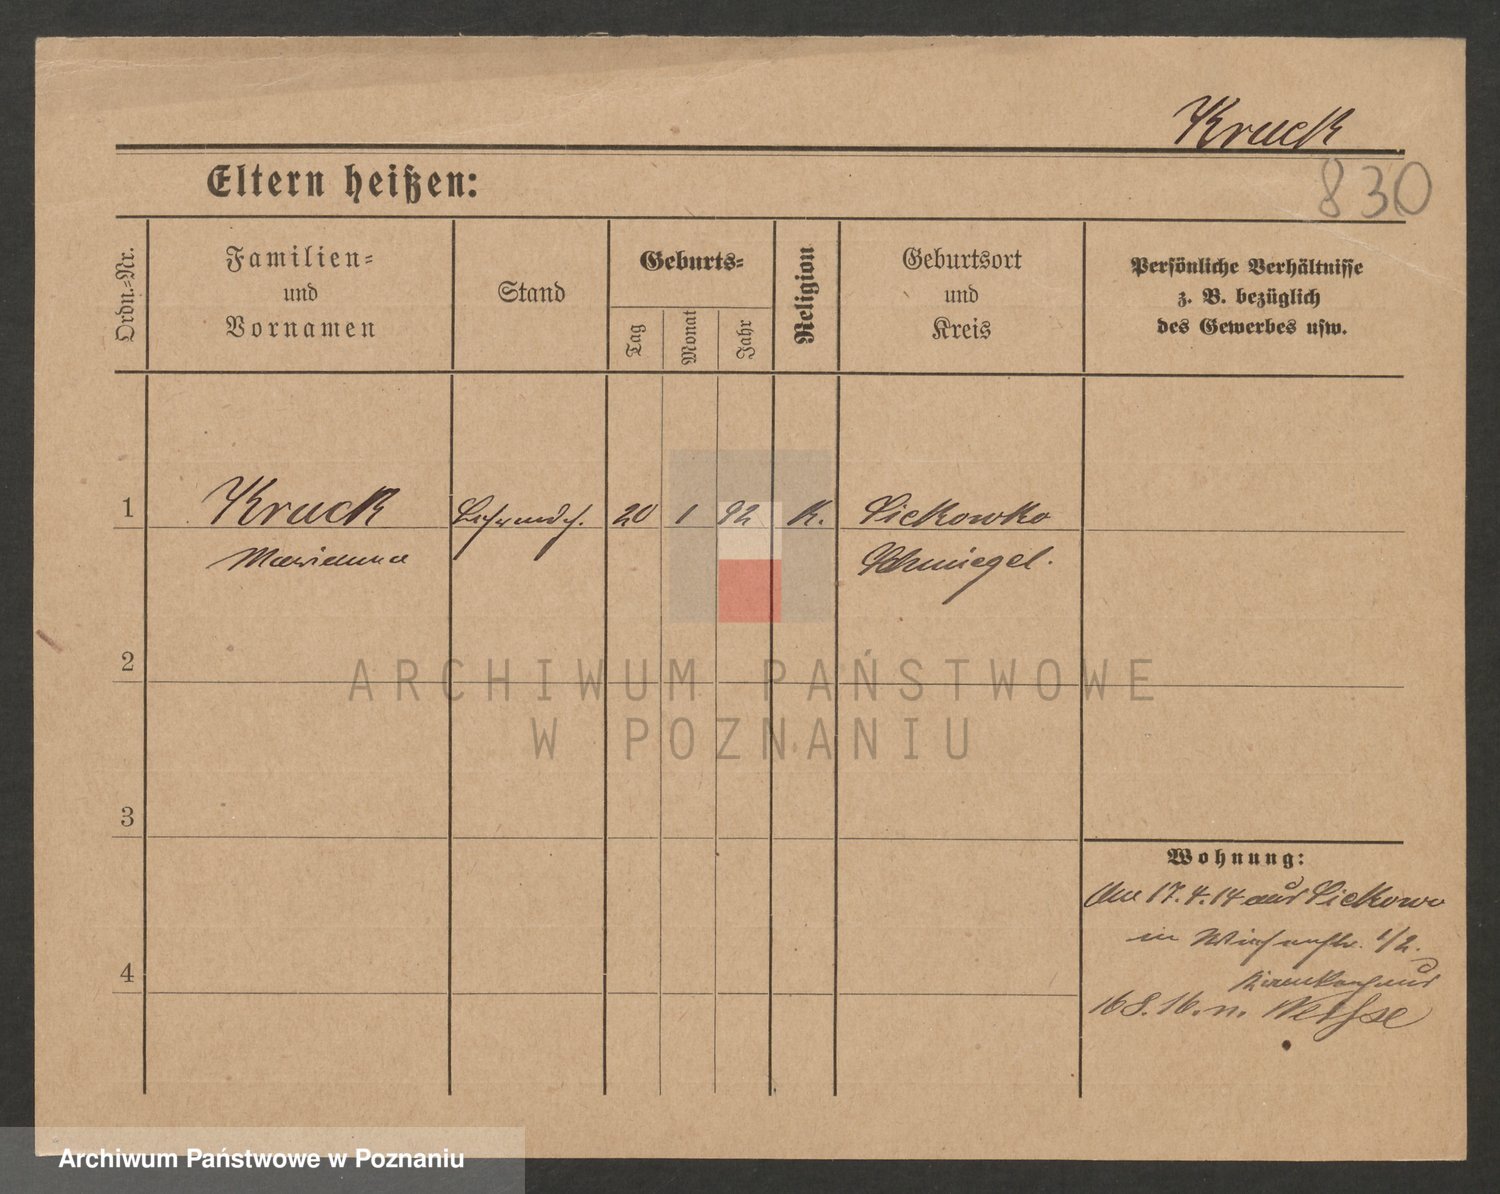 Kruck
830
Eltern heißen:
Ordn.-Nr.
Familien-
und
Vornamen
Stand
Geburts-
Tag
Monat
Jahr
Religion
Geburtsort
und
Kreis
Persönliche Verhältnisse
z. B. bezüglich
des Gewerbes usw.
1
Kruck
20
1
92
K.
Sickowko
Marianna
Schmiegel.
2
ARCHIWUM PAŃSTWOWE
W POZNANIU
3
Wohnung:
17.4.14 aus Sickowo
in 1/2.
4
16.8.16. n.
Archiwum Państwowe w Poznaniu